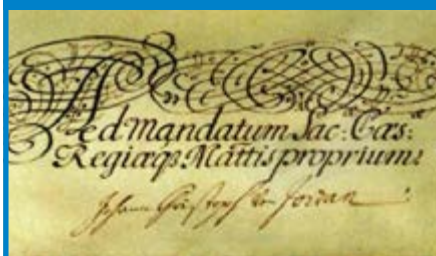 Ad Mandatum Sac: Cæs:
Regiæqз Mattis proprium:
Johann Christoph von Jordan